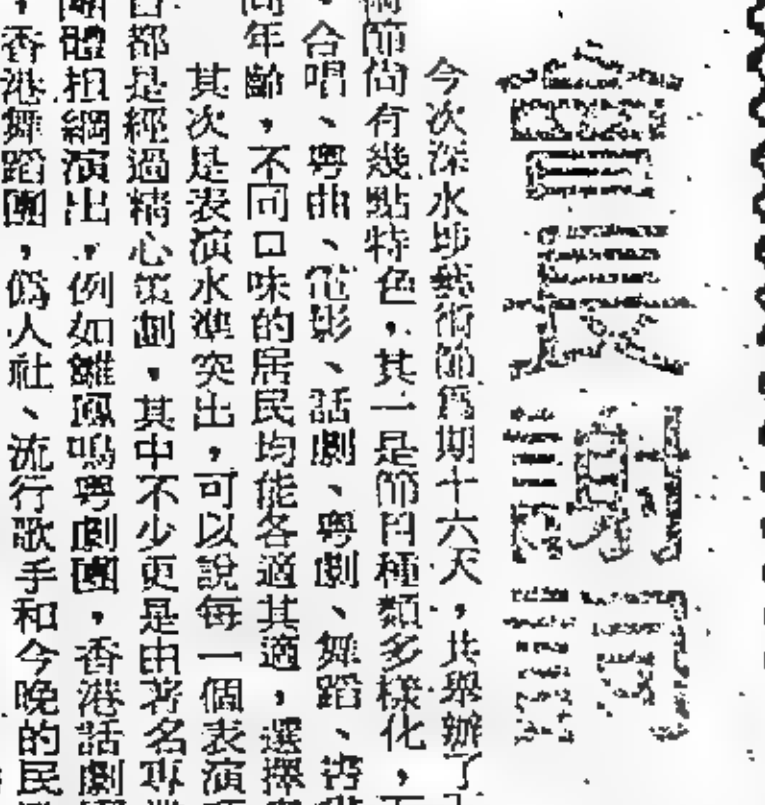 會長謝詞
今次深水埗藝術節為期十六天，共舉辦了
節尚有幾點特色，其一是節目種類多樣化，
、合唱、粵曲、電影、話劇、粵劇、舞蹈、書
年齡，不同口味的居民均能各適其適，選擇
其次是表演水準突出，可以說每一個表演
都是經過精心策劃，其中不少更是由著名專
團體担綱演出，例如雛鳳鳴粵劇團，香港話劇
，香港舞蹈團，偽人社、流行歌手和今晚的民